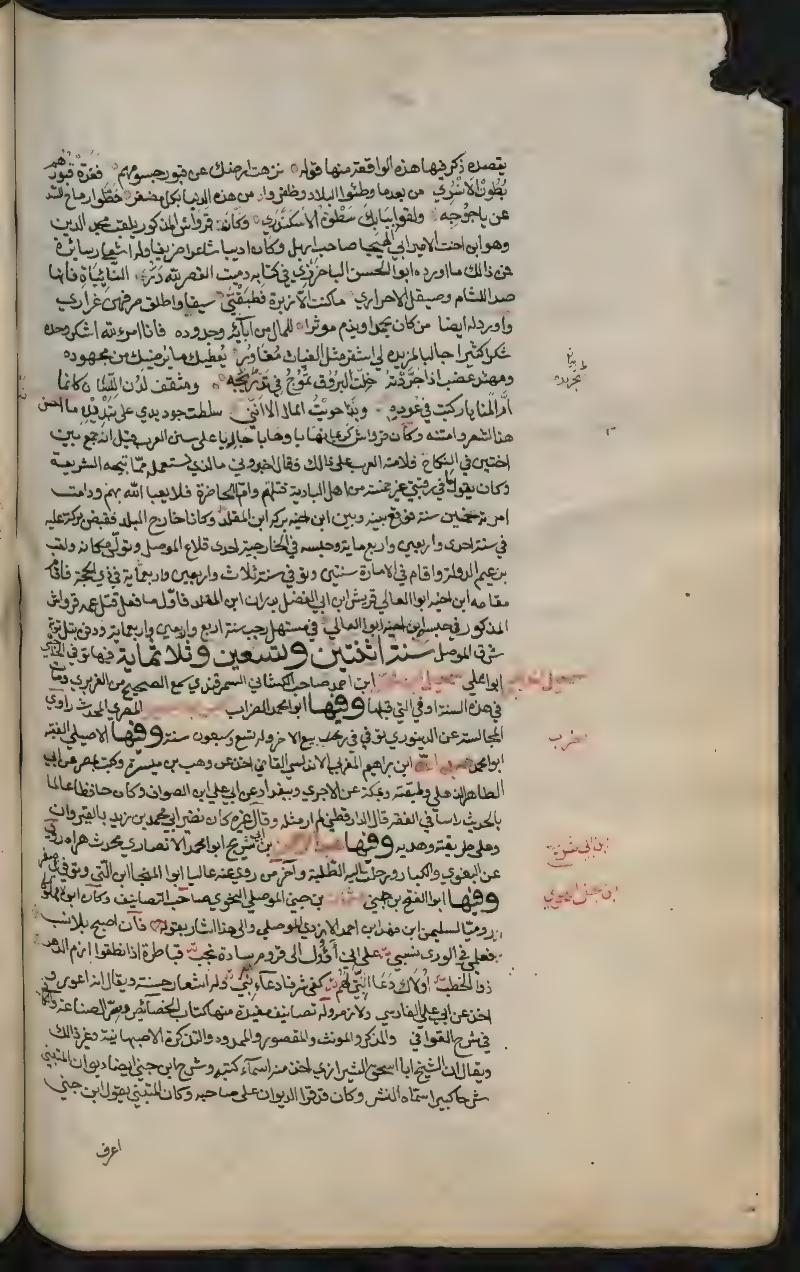 بقصيدة ذكر فيها هذه الواقعة منها قوله نزهت ارضك عن قبور جسومهم فغدت قبورهم
بطون الانسر من بعد ما وطئوا البلاد وظفروا من هذه الدنيا بكل مظفر
عن ياجوجه ولقوا ببابك سطوة الاسكندر وكان قرواش المذكور يلقب مجد الدين
وهو ابن اخت الامير ابي الهيجا صاحب اربل وكان اديبا شاعرا ظريفا وله اشعار سايرة
فمن ذالك ما اورده ابو الحسن الباخرزي في كتابه دمية القصر لله در النائبات فانها
صدا اللئام وصيقل الاحرار ما كنت الا زبرة فطبعنني سيفا واطلق صرفهن غراري
واورد له ايضا من كان يحمد او يذم موثرا للمال من آبائه وجدوده فانا امرء لله اشكر وحده
شكرا كثيرا جالبا لمزيده لي اشقر مثل الغياث مغاور يعطيك ما يرضيك من مجهوده
ومهند عضب اذا جردته خلت البروق تموج في تجريده ومثقف لدن السنان كانما
ام المنايا ركبت في عوده وبذا حويت المال الا انني سلطت جود يدي على تبديده ما احسن
هذا الشعر وامتنه وكان قرواش كريما نهابا وهابا جاريا على سنن العرب قيل انه جمع بين
اختين في النكاح فلامته العرب على ذالك فقال اخبروني ما الذي نستعمله مما تبيحه الشريعة
وكان يقول ما في رقبتي غير خمسة من اهل البادية قتلتهم واما الحاضرة فلا يعبا الله بهم ودامت
امرته خمسين سنة فوقع بينه وبين ابن اخيه بركة ابن المقلد وكانا خارج البلد فقبض بركة عليه
في سنة احدى واربعين واربع ماية وحبسه في الخارجية احدى قلاع الموصل وتولى مكانه ولقب
بزعيم الدولة واقام في الامارة سنتين وتوفي سنة ثلاث واربعين واربعماية في ذي الحجة فاقام
مقامه ابن اخيه ابو المعالي قريش ابن ابي الفضل بدران ابن المقلد فاول ما فعل قتل عمه قرواش
المذكور في حبسه ابن اخيه ابو المعالي في مستهل رجب سنة اربع واربعين واربعماية ودفن بتل توبة
شرقي الموصل سنة اثنتين وتسعين وثلاثماية فيها توفي الحاجبي
ابو علي اسمعيل ابن محمد ابن احمد صاحب الكشاني السمرقندي سمع الصحيح من الفربري ومات
في هذه السنة او في التي قبلها وفيها ابو محمد الضراب المصري المحدث راوي
المجالسة عن الدينوري توفي في ربيع الاخر وله تسع وسبعون سنة وفيها الاصيلي الفقيه
ابو محمد عبد الله ابن ابراهيم المغربي الاندلسي القاضي اخذ عن وهب بن ميسرة وكتب بمصر عن ابي
الطاهر الذهلي وطبقته وبمكة عن الاجري وببغداد عن ابي علي ابن الصواف وكان حافظا عالما
بالحديث راسا في الفقه قال الدارقطني لم ار مثله وقال غيره كان نظير ابي محمد بن زيد بالقيروان
وعلى طريقته وهديه وفيها عبد الرحمن بن ابي شريح ابو محمد الانصاري محدث هراة روى
عن البغوي والكبار ورحلت اليه الطلبة وآخر من روى عنه عاليا ابو المنجا ابن اللتي وتوفي في صفر
وفيها ابو الفتح بن جني عثمان بن جني الموصلي النحوي صاحب التصانيف وكان ابوه مملوكا
روميا لسليمن ابن فهد ابن احمد الازدي الموصلي والى هذا اشار بقوله فان اصبح بلا نسب
فعلمي في الورى نسبي على اني أؤول الى قروم سادة نجب قياصرة اذا نطقوا ارم الدهر
ذو الخطب أولاك دعا النبي لهم كفى شرفا دعاء نبي وله اشعار حسنة ويقال انه اعور
اخذ عن ابي علي الفارسي ولازمه وله تصانيف مفيدة منها كتاب الخصائص وسر الصناعة والكافي
في شرح القوافي والمذكر والمونث والمقصور والممدود والتذكرة الاصبهانية وغير ذالك
ويقال ان الشيخ ابا اسحق الشيرازي اخذ منه اسماء كتبه وشرح ابن جني ايضا ديوان المتنبي
شرحا كبيرا سماه الفسر وكان قد قرا الديوان على صاحبه وكان المتنبي يقول ابن جني
اعرف
تجريده
ابن ابي شريح
ابن جني النحوي